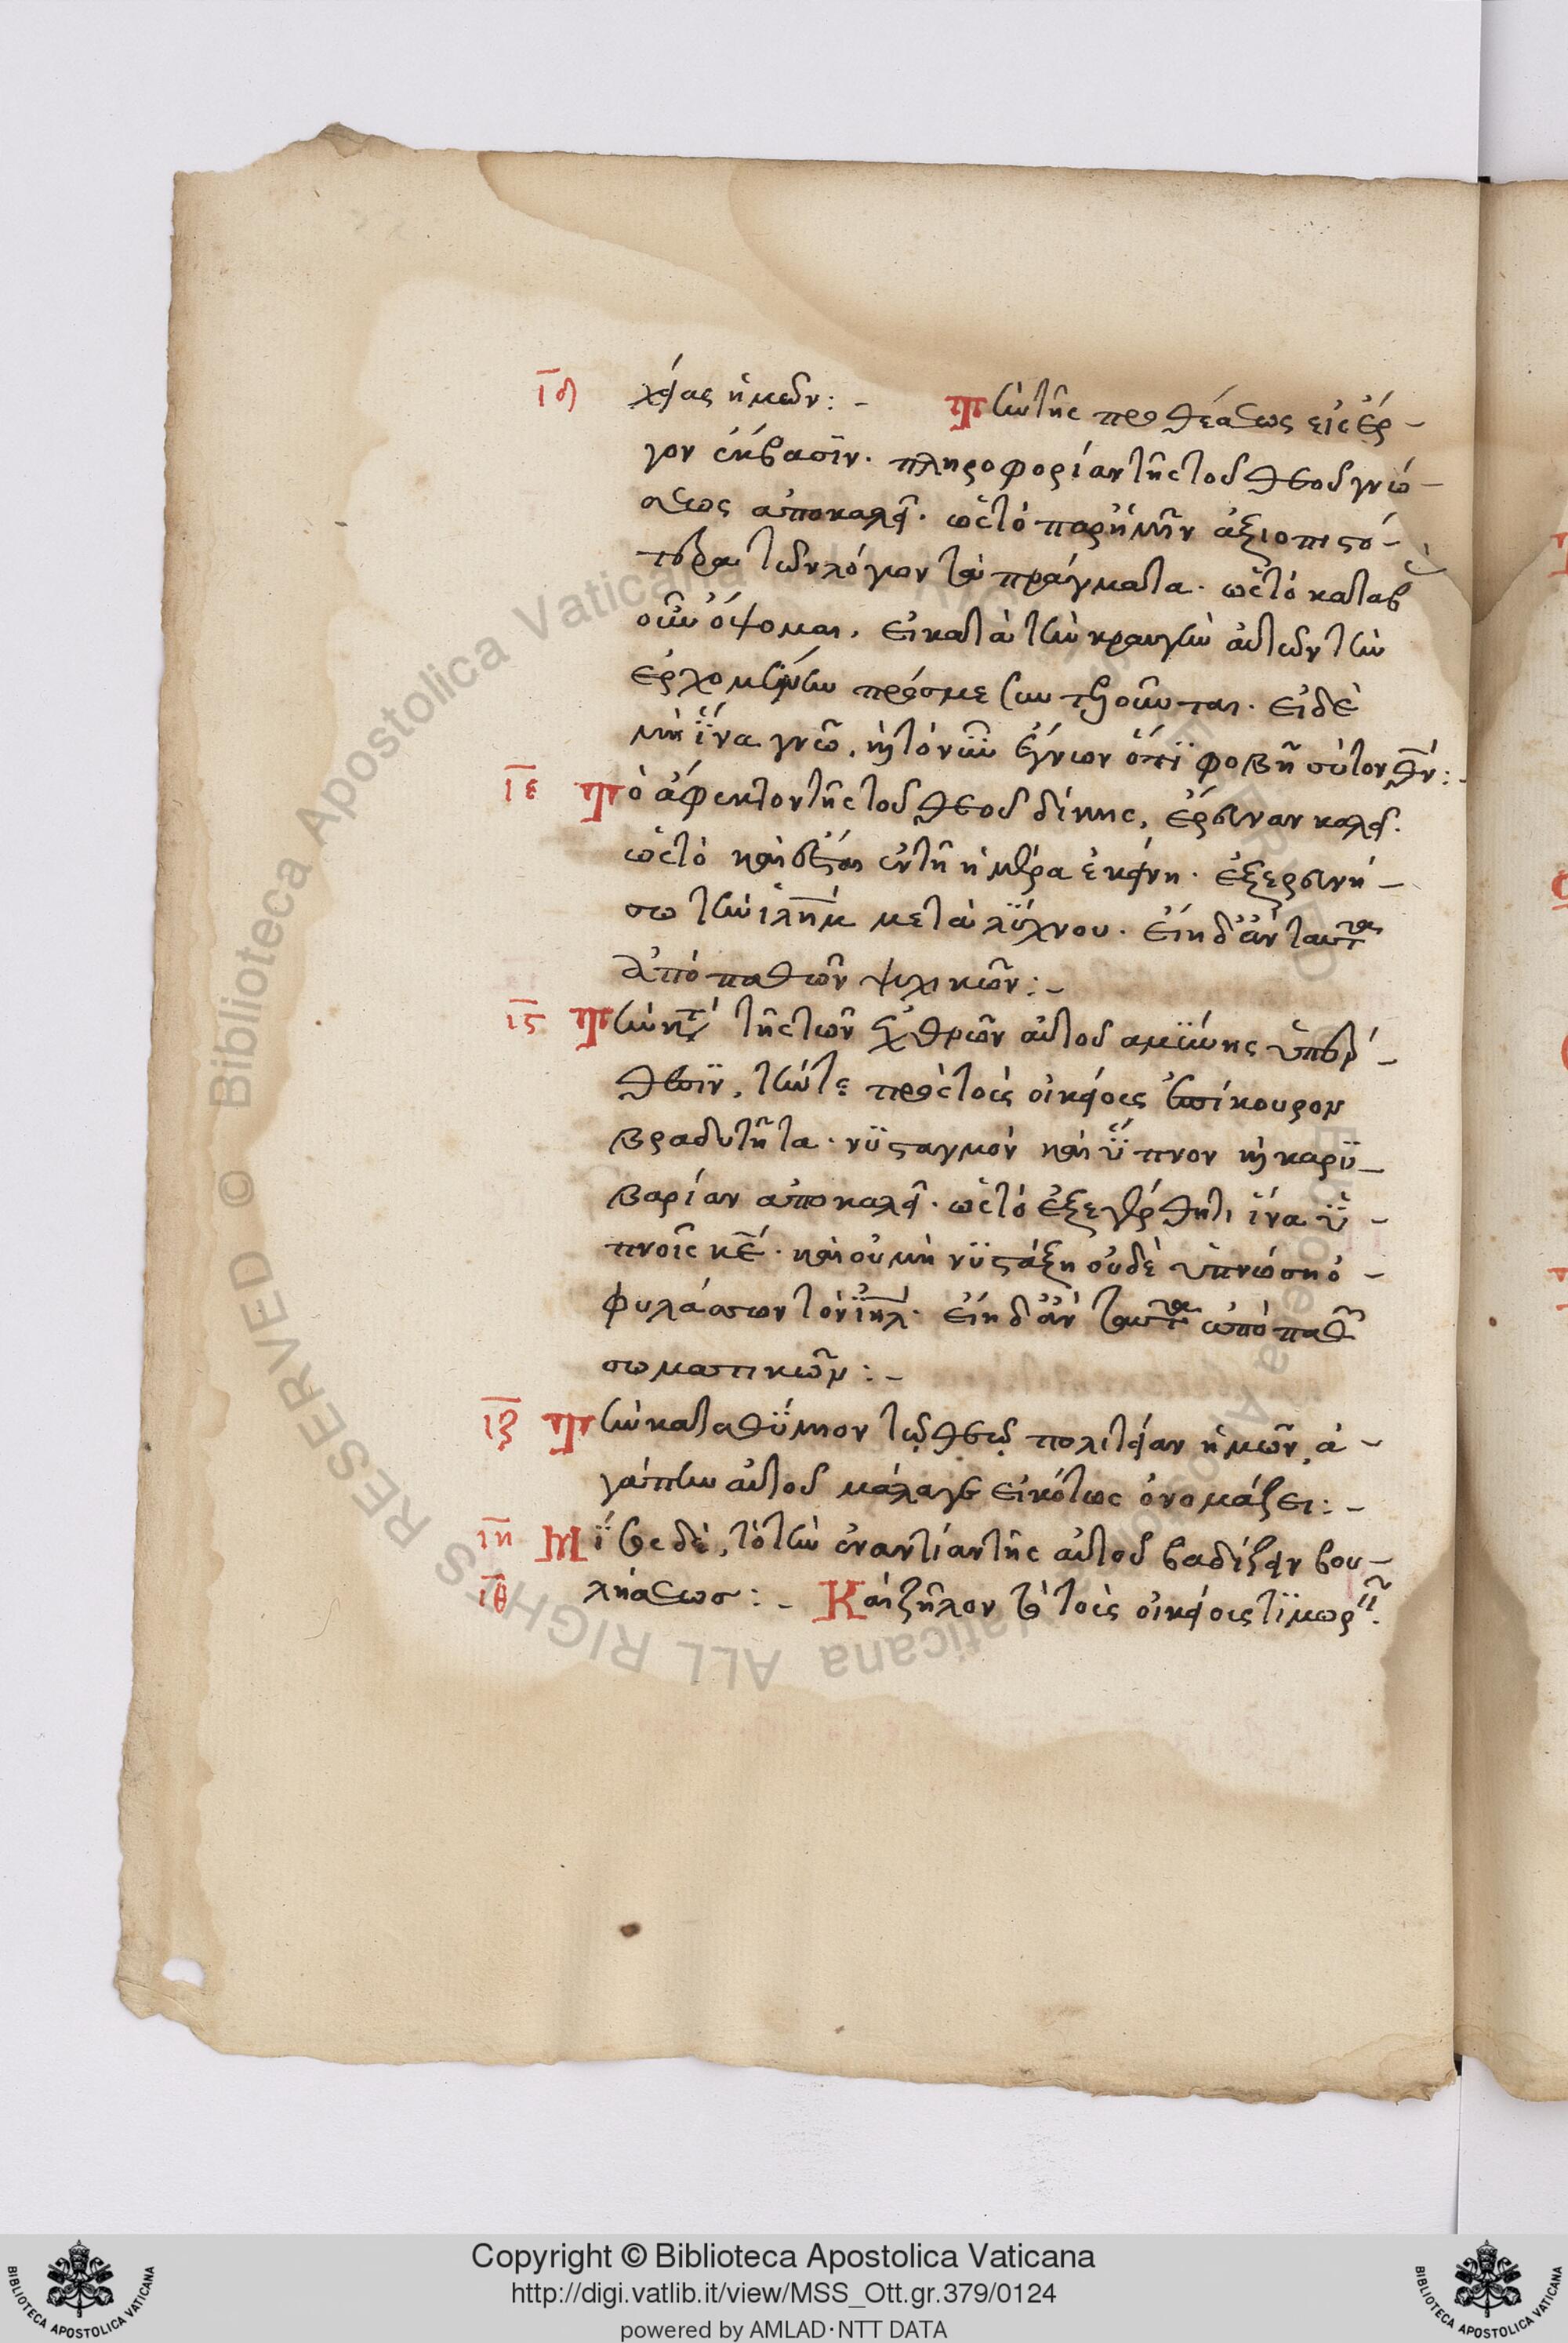 ιδ χείας ἡμῶν: – Τὴν τῆς προθέσεως εἰς ἔρ–
γον ἔκβασϊν. πληροφορίαν τῆς τοῦ θεοῦ γνώ–
σεως ἀποκαλεῖ. ὡς τὸ παρ' ἡμῖν ἀξιοπιστό–
τερα τῶν λόγων τὰ πράγματα. ὡς τὸ καταβ
οὖν ὄψομαι, εἰ κατὰ τὴν κραυγὴν αὐτῶν τὴν
ἐρχομένην πρός με συντελοῦνται. εἰ δὲ
μὴ ἵ̈να γνῶ. καὶ τὸ νῦν ἔγνων ὅτϊ φοβῆ σὺ τὸν θν̄:
ιε Τὸ ἄφυκτον τῆς τοῦ θεοῦ δίκης, ἔρευναν καλεῖ.
ὡς τὸ καὶ ἔσται ἐν τῆ ἡμέρα ἐκείνη. ἐξερευνή–
σω τὴν ἰλημ μετὰ λύχνου. εἴη δ' ἂν ταῦτα
ἀπὸ παθῶν ψυχικῶν: –
ις Τὴν κατὰ τῆς τῶν ἐχθρῶν αὐτοῦ ἀμύνης ὑπέρ–
θεσϊν, τήν τε πρὸς τοὺς οἰκείους ἐπίκουρον
βραδυτῆτα. νϋσταγμὸν καὶ ὕ̈πνον καὶ καρϋ–
βαρίαν ἀποκαλεῖ. ὡς τὸ ἐξεγέρθητι ἵνα ὑ̈–
πνοῖς κε̄. καὶ οὐ μὴ νϋστάξη οὐδὲ ὑπνώση ὁ –
φυλάσσων τὸν ιηλ. εἴη δ' ἂν ταῦτα ἀπὸ παθ
σωματικῶν: –
ιζ Τὴν καταθύμιον τῷ θεῷ πολιτείαν ἡμῶν, ἀ–
γάπην αὐτοῦ μάλα γε εἰκότως ὀνομάζει: –
ιη Μῖ̈σος δὲ, τὸ τὴν ἐναντίαν τῆς αὐτοῦ βαδίζειν βου–
ιθ λήσεως: – Καὶ ζῆλον τὸ τοὺς οἰκείους τϊμωρ
Copyright © Biblioteca Apostolica Vaticana
http://digi.vatlib.it/view/MSS_Ott.gr.379/0124
powered by AMLAD·NTT DATA
Biblioteca Apostolica Vaticana
ALL RIGHTS RESERVED ©
BIBLIOTECA APOSTOLICA VATICANA
BIBLIOTECA APOSTOLICA VATICANA